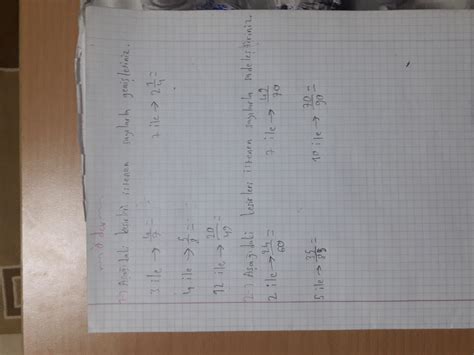 1-) Aşağıdaki kesirleri istenen sayılarla genişletiniz.
3 ile → 4/7 = 7 ile → 2 1/4 =
4 ile → 5/9 =
12 ile → 20/40 =
2-) Aşağıdaki kesirleri istenen sayılarla sadeleştiriniz.
2 ile → 24/60 = 7 ile → 49/70
5 ile → 35/85 = 10 ile → 70/90 =